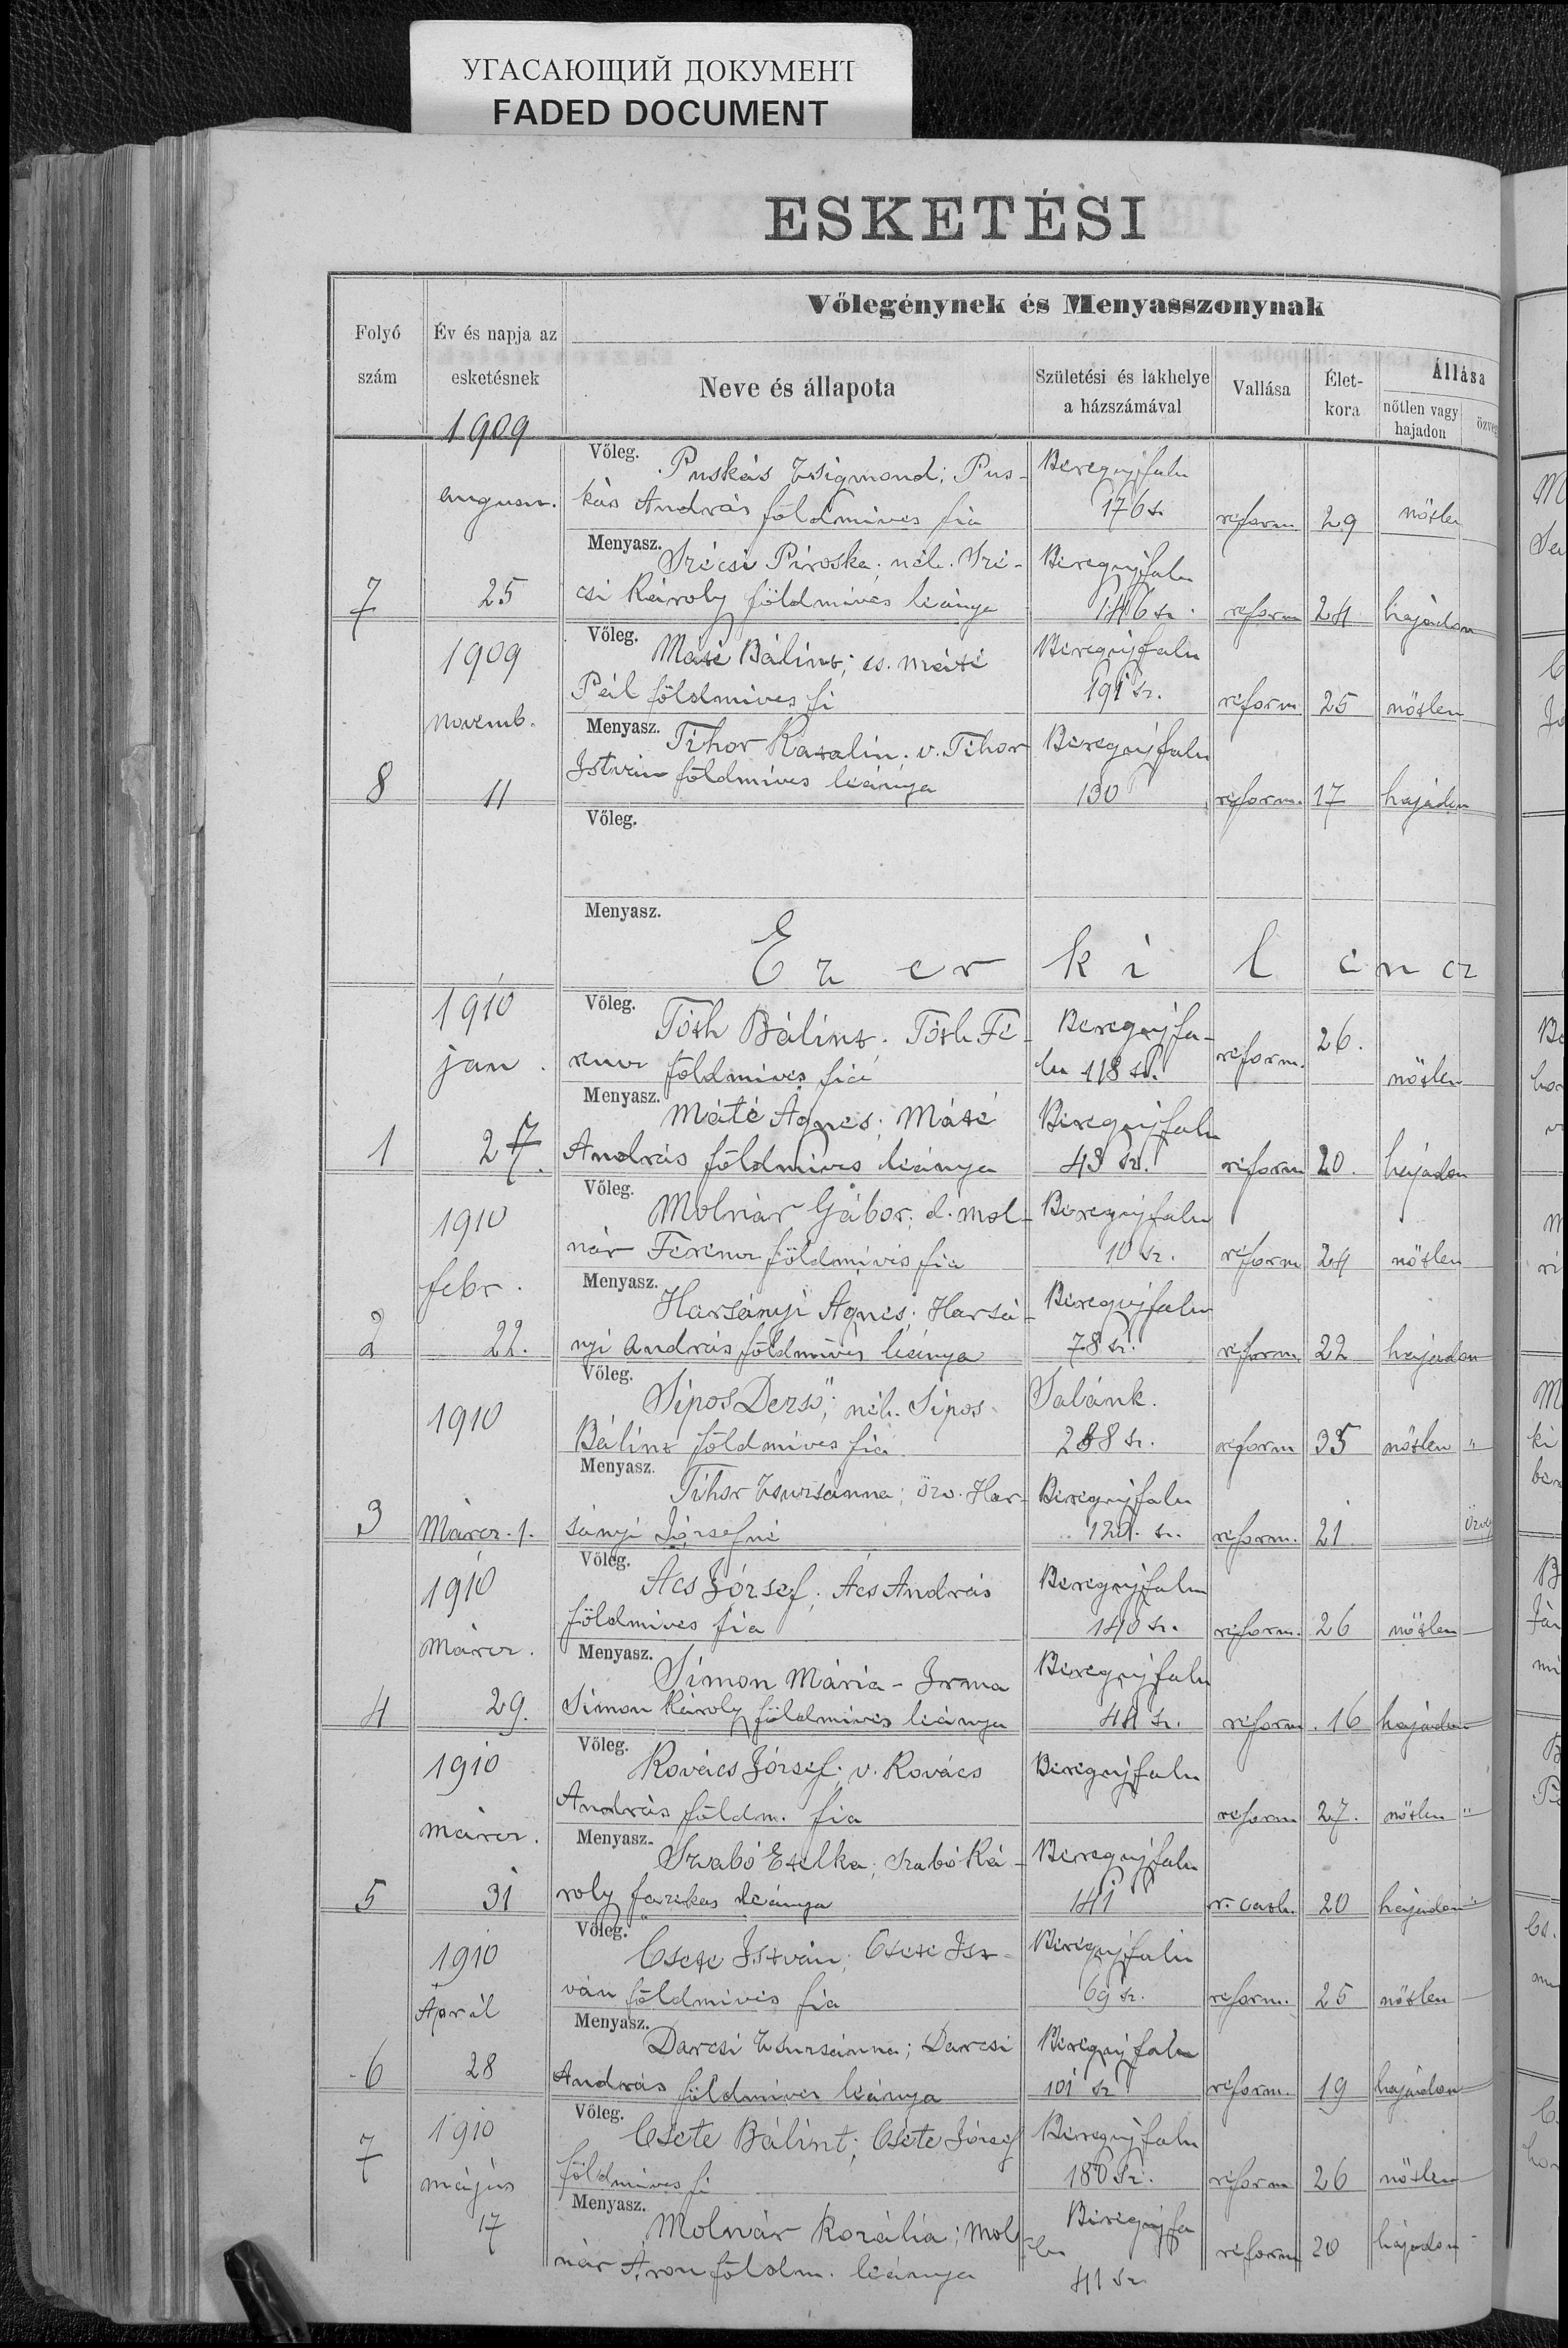 УГАСАЮЩИЙ ДОКУМЕНТ
FADED DOCUMENT
ESKETÉSI
Vőlegénynek és Menyasszonynak
Folyó szám
Év és napja az esketésnek
Neve és állapota
Születési és lakhelye a házszámával
Vallása
Élet-kora
Állása
nőtlen vagy hajadon
özveg
1909
Vőleg. Puskás Zsigmond; Pus- Beregujfalu
augusz. kás András földmives fia 176 sz. reform 29 nőtlen
Menyasz. Szécsi Piroska; néh. Szé- Beregujfalu
7 25 csi Károly földmives leánya 146 sz. reform 24 hajadon
1909 Vőleg. Máté Bálint; cs. Máté Beregujfalu
Pál földmives fi 191 sz. reform 25 nőtlen
novemb. Menyasz. Tihor Katalin. v. Tihor Beregujfalu
8 11 István földmives leánya 130 reform. 17 hajadon
Vőleg.
Menyasz.
E z e r k i l e n cz
1910 Vőleg. Tóth Bálint. Tóth Fe- Beregujfa- 26.
jan. rencz földmives fia lu 118 sz. reform. nőtlen
Menyasz. Máté Ágnes; Máté Beregujfalu
1 27. András földmives leánya 43 sz. reform 20. hajadon
1910 Vőleg. Molnár Gábor; d. Mol- Beregujfalu
nár Ferencz földmives fia 10 sz. reform 24 nőtlen
febr. Menyasz. Harsányi Ágnes; Harsá- Beregujfalu
2 22. nyi András földmives leánya 78 sz. reform 22 hajadon
1910 Vőleg. Sipos Dezső; néh. Sipos Salánk.
Bálint földmives fia 288 sz. reform 35 nőtlen "
Menyasz. Tihor Zsuzsánna; özv. Har- Beregujfalu
3 Márcz. 1. sányi Józsefné sz. reform. 21 özv
1910 Vőleg. Ács József; Ács András Beregujfalu
földmives fia 140 sz. reform. 26 nőtlen
Márcz. Menyasz. Simon Mária - Irma Beregujfalu
4 29. Simon Károly földmives leánya 44 sz. reform. 16 hajadon
1910 Vőleg. Kovács József; v. Kovács Beregujfalu
András földm. fia reform 27. nőtlen "
márcz. Menyasz. Szabó Etelka; Szabó Ká- Beregujfalu
5 31 roly leánya 141 r. cath. 20 hajadon "
1910 Vőleg. Csete István; Csete Ist- Beregujfalu
ván földmives fia 69 sz. reform. 25 nőtlen
April Menyasz. Darcsi Zsuzsánna; Darcsi Beregujfalu
6 28 András földmives leánya 101 sz reform. 19 hajadon
7 1910 Vőleg. Csete Bálint; Csete József Beregujfalu
május földmives fi 180 sz. reform 26 nőtlen
17 Menyasz. Molnár Rozália; Mol Beregujfa
nár Áron földm. leánya lu 41 sz. reform 20 hajadon